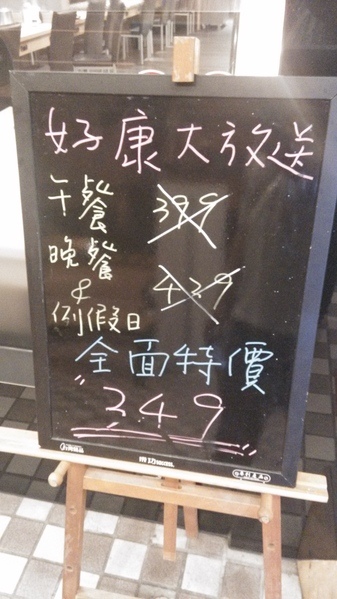 好康大放送
午餐 399
晚餐
& 429
例假日
全面特價
"349"